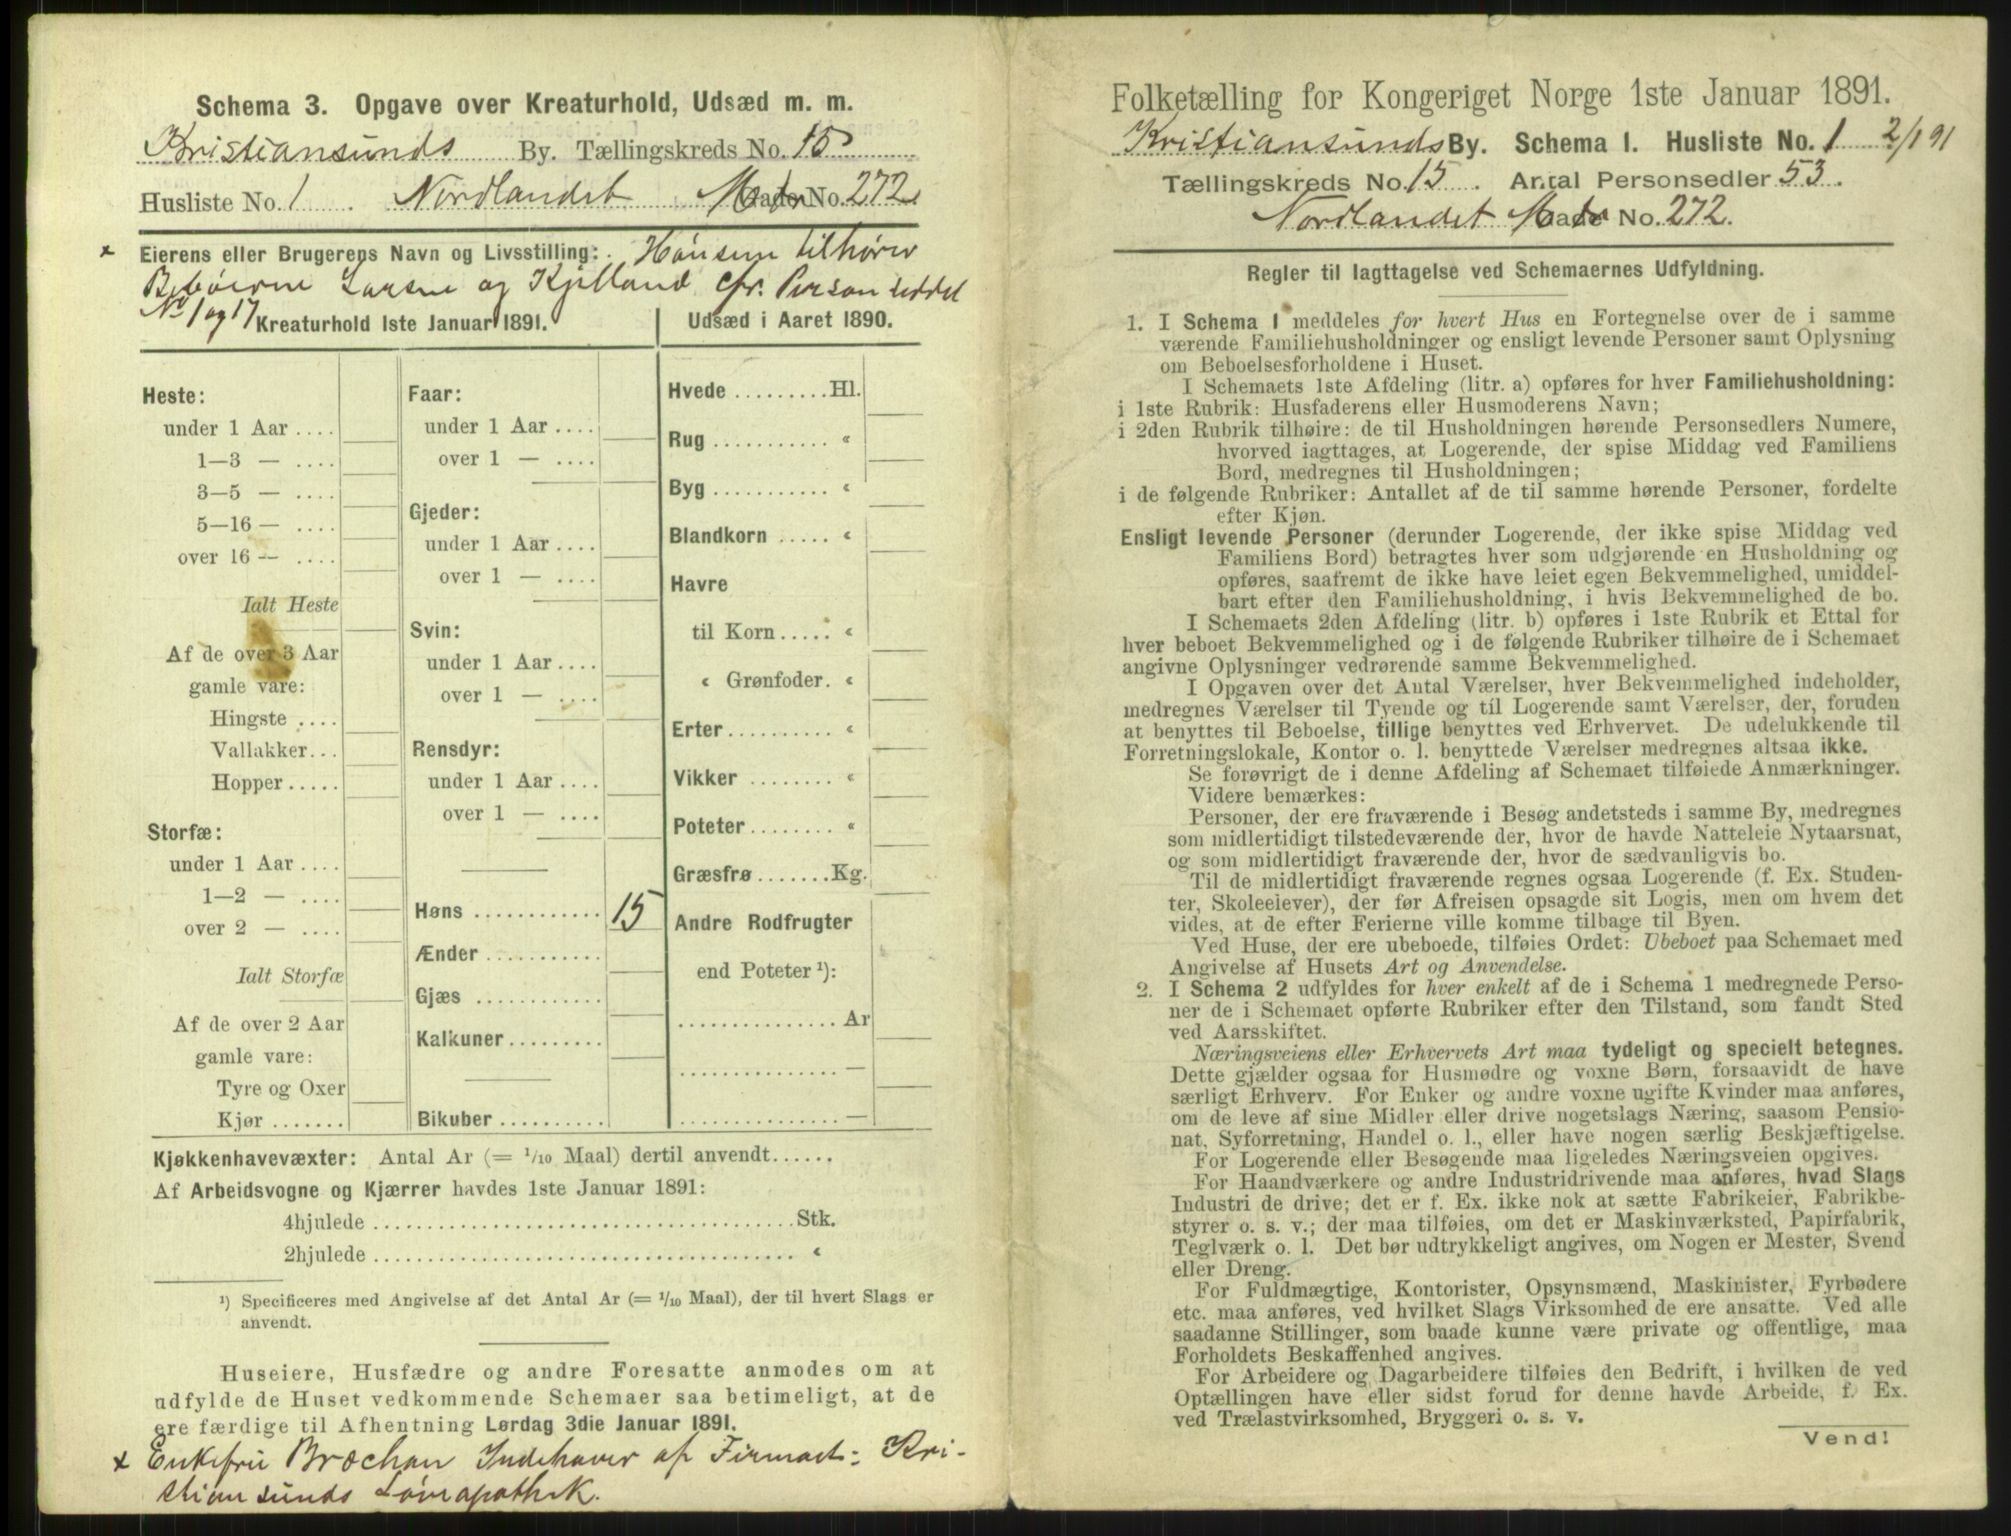 Schema 3. Opgave over Kreaturhold, Udsæd m. m.
Kristiansunds By. Tællingskreds No. 15
Husliste No. 1. Nordlandet Matr No. 272
× Eierens eller Brugerens Navn og Livsstilling: Hønsene tilhører
Beboerne Larsen og Kjelland cfr. Personseddel
No 1 og 17
Kreaturhold 1ste Januar 1891.
Udsæd i Aaret 1890.
Heste:
under 1 Aar ....
1—3 — ....
3—5 — ....
5—16 — ....
over 16 — ....
Ialt Heste
Af de over 3 Aar
gamle vare:
Hingste ....
Vallakker...
Hopper.....
Storfæ:
under 1 Aar ....
1—2 — ....
over 2 — ....
Ialt Storfæ
Af de over 2 Aar
gamle vare:
Tyre og Oxer
Kjør .......
Faar:
under 1 Aar ....
over 1 — ....
Gjeder:
under 1 Aar ....
over 1 — ....
Svin:
under 1 Aar ....
over 1 — ....
Rensdyr:
under 1 Aar ....
over 1 — ....
Høns ............ 15
Ænder ...........
Gjæs ............
Kalkuner.........
Bikuber ..........
Hvede .........Hl.
Rug ........... «
Byg ........... «
Blandkorn ..... «
Havre
til Korn ..... «
« Grønfoder. «
Erter.......... «
Vikker ........ «
Poteter........ «
Græsfrø .......Kg.
Andre Rodfrugter
end Poteter ¹):
............... Ar
............... —
............... —
Kjøkkenhavevæxter: Antal Ar (= 1/10 Maal) dertil anvendt......
Af Arbeidsvogne og Kjærrer havdes 1ste Januar 1891:
4hjulede ........................................Stk.
2hjulede ........................................ «
¹) Specificeres med Angivelse af det Antal Ar (= 1/10 Maal), der til hvert Slags er
anvendt.
Huseiere, Husfædre og andre Foresatte anmodes om at
udfylde de Huset vedkommende Schemaer saa betimeligt, at de
ere færdige til Afhentning Lørdag 3die Januar 1891.
× Enkefru Bræchan Indehaver af Firmaet: Kri-
stiansunds Løveapothek.
Folketælling for Kongeriget Norge 1ste Januar 1891.
Kristiansunds By. Schema I. Husliste No. 1 2/1 91
Tællingskreds No. 15. Antal Personsedler 53.
Nordlandet Matr No. 272.
Regler til Iagttagelse ved Schemaernes Udfyldning.
1. I Schema 1 meddeles for hvert Hus en Fortegnelse over de i samme
værende Familiehusholdninger og ensligt levende Personer samt Oplysning
om Beboelsesforholdene i Huset.
I Schemaets 1ste Afdeling (litr. a) opføres for hver Familiehusholdning:
i 1ste Rubrik: Husfaderens eller Husmoderens Navn;
i 2den Rubrik tilhøire: de til Husholdningen hørende Personsedlers Numere,
hvorved iagttages, at Logerende, der spise Middag ved Familiens
Bord, medregnes til Husholdningen;
i de følgende Rubriker: Antallet af de til samme hørende Personer, fordelte
efter Kjøn.
Ensligt levende Personer (derunder Logerende, der ikke spise Middag ved
Familiens Bord) betragtes hver som udgjørende en Husholdning og
opføres, saafremt de ikke have leiet egen Bekvemmelighed, umiddel-
bart efter den Familiehusholdning, i hvis Bekvemmelighed de bo.
I Schemaets 2den Afdeling (litr. b) opføres i 1ste Rubrik et Ettal for
hver beboet Bekvemmelighed og i de følgende Rubriker tilhøire de i Schemaet
angivne Oplysninger vedrørende samme Bekvemmelighed.
I Opgaven over det Antal Værelser, hver Bekvemmelighed indeholder,
medregnes Værelser til Tyende og til Logerende samt Værelser, der, foruden
at benyttes til Beboelse, tillige benyttes ved Erhvervet. De udelukkende til
Forretningslokale, Kontor o. l. benyttede Værelser medregnes altsaa ikke.
Se forøvrigt de i denne Afdeling af Schemaet tilføiede Anmærkninger.
Videre bemærkes:
Personer, der ere fraværende i Besøg andetsteds i samme By, medregnes
som midlertidigt tilstedeværende der, hvor de havde Natteleie Nytaarsnat,
og som midlertidigt fraværende der, hvor de sædvanligvis bo.
Til de midlertidigt fraværende regnes ogsaa Logerende (f. Ex. Studen-
ter, Skoleeiever), der før Afreisen opsagde sit Logis, men om hvem det
vides, at de efter Ferierne ville komme tilbage til Byen.
Ved Huse, der ere ubeboede, tilføies Ordet: Ubeboet paa Schemaet med
Angivelse af Husets Art og Anvendelse.
2. I Schema 2 udfyldes for hver enkelt af de i Schema 1 medregnede Perso-
ner de i Schemaet opførte Rubriker efter den Tilstand, som fandt Sted
ved Aarsskiftet.
Næringsveiens eller Erhvervets Art maa tydeligt og specielt betegnes.
Dette gjælder ogsaa for Husmødre og voxne Børn, forsaavidt de have
særligt Erhverv. For Enker og andre voxne ugifte Kvinder maa anføres,
om de leve af sine Midler eller drive nogetslags Næring, saasom Pensio-
nat, Syforretning, Handel o. l., eller have nogen særlig Beskjæftigelse.
For Logerende eller Besøgende maa ligeledes Næringsveien opgives.
For Haandværkere og andre Industridrivende maa anføres, hvad Slags
Industri de drive; det er f. Ex. ikke nok at sætte Fabrikeier, Fabrikbe-
styrer o. s. v.; der maa tilføies, om det er Maskinværksted, Papirfabrik,
Teglværk o. l. Det bør udtrykkeligt angives, om Nogen er Mester, Svend
eller Dreng.
For Fuldmægtige, Kontorister, Opsynsmænd, Maskinister, Fyrbødere
etc. maa anføres, ved hvilket Slags Virksomhed de ere ansatte. Ved alle
saadanne Stillinger, som baade kunne være private og offentlige, maa
Forholdets Beskaffenhed angives.
For Arbeidere og Dagarbeidere tilføies den Bedrift, i hvilken de ved
Optællingen have eller sidst forud for denne havde Arbeide, f. Ex.
ved Trælastvirksomhed, Bryggeri o. s. v.
Vend!